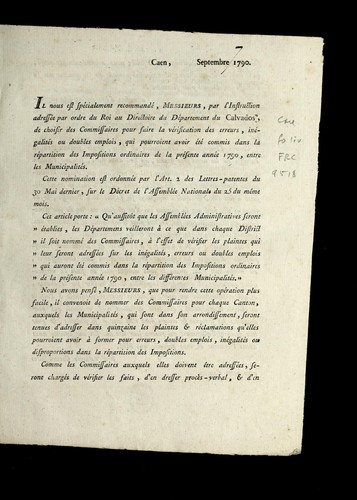 7
Caen, Septembre 1790.
Il nous est spécialement recommandé, Messieurs, par l'Instruction
adressée par ordre du Roi au Directoire du Département du Calvados,
de choisir des Commissaires pour faire la vérification des erreurs, iné-
galités ou doubles emplois, qui pourroient avoir été commis dans la
répartition des Impositions ordinaires de la présente année 1790, entre
les Municipalités.
Cette nomination est ordonnée par l'Art. 2 des Lettres-patentes du
30 Mai dernier, sur le Décret de l'Assemblée Nationale du 25 du même
mois.
Cet article porte : « Qu'aussitôt que les Assemblées Administratives seront
» établies, les Départemens veilleront à ce que dans chaque District
» il soit nommé des Commissaires, à l'effet de vérifier les plaintes qui
» leur seront adressées sur les inégalités, erreurs ou doubles emplois
» qui auront été commis dans la répartition des Impositions ordinaires
» de la présente année 1790, entre les différentes Municipalités. »
Nous avons pensé, Messieurs, que pour rendre cette opération plus
facile, il convenoit de nommer des Commissaires pour chaque Canton,
auxquels les Municipalités, qui sont dans son arrondissement, seront
tenues d'adresser dans quinzaine les plaintes & réclamations qu'elles
pourroient avoir à former pour erreurs, doubles emplois, inégalités ou
disproportions dans la répartition des Impositions.
Comme les Commissaires auxquels elles doivent être adressées, se-
ront chargés de vérifier les faits, d'en dresser procès-verbal, & d'en
Case
folio
FRC
9518